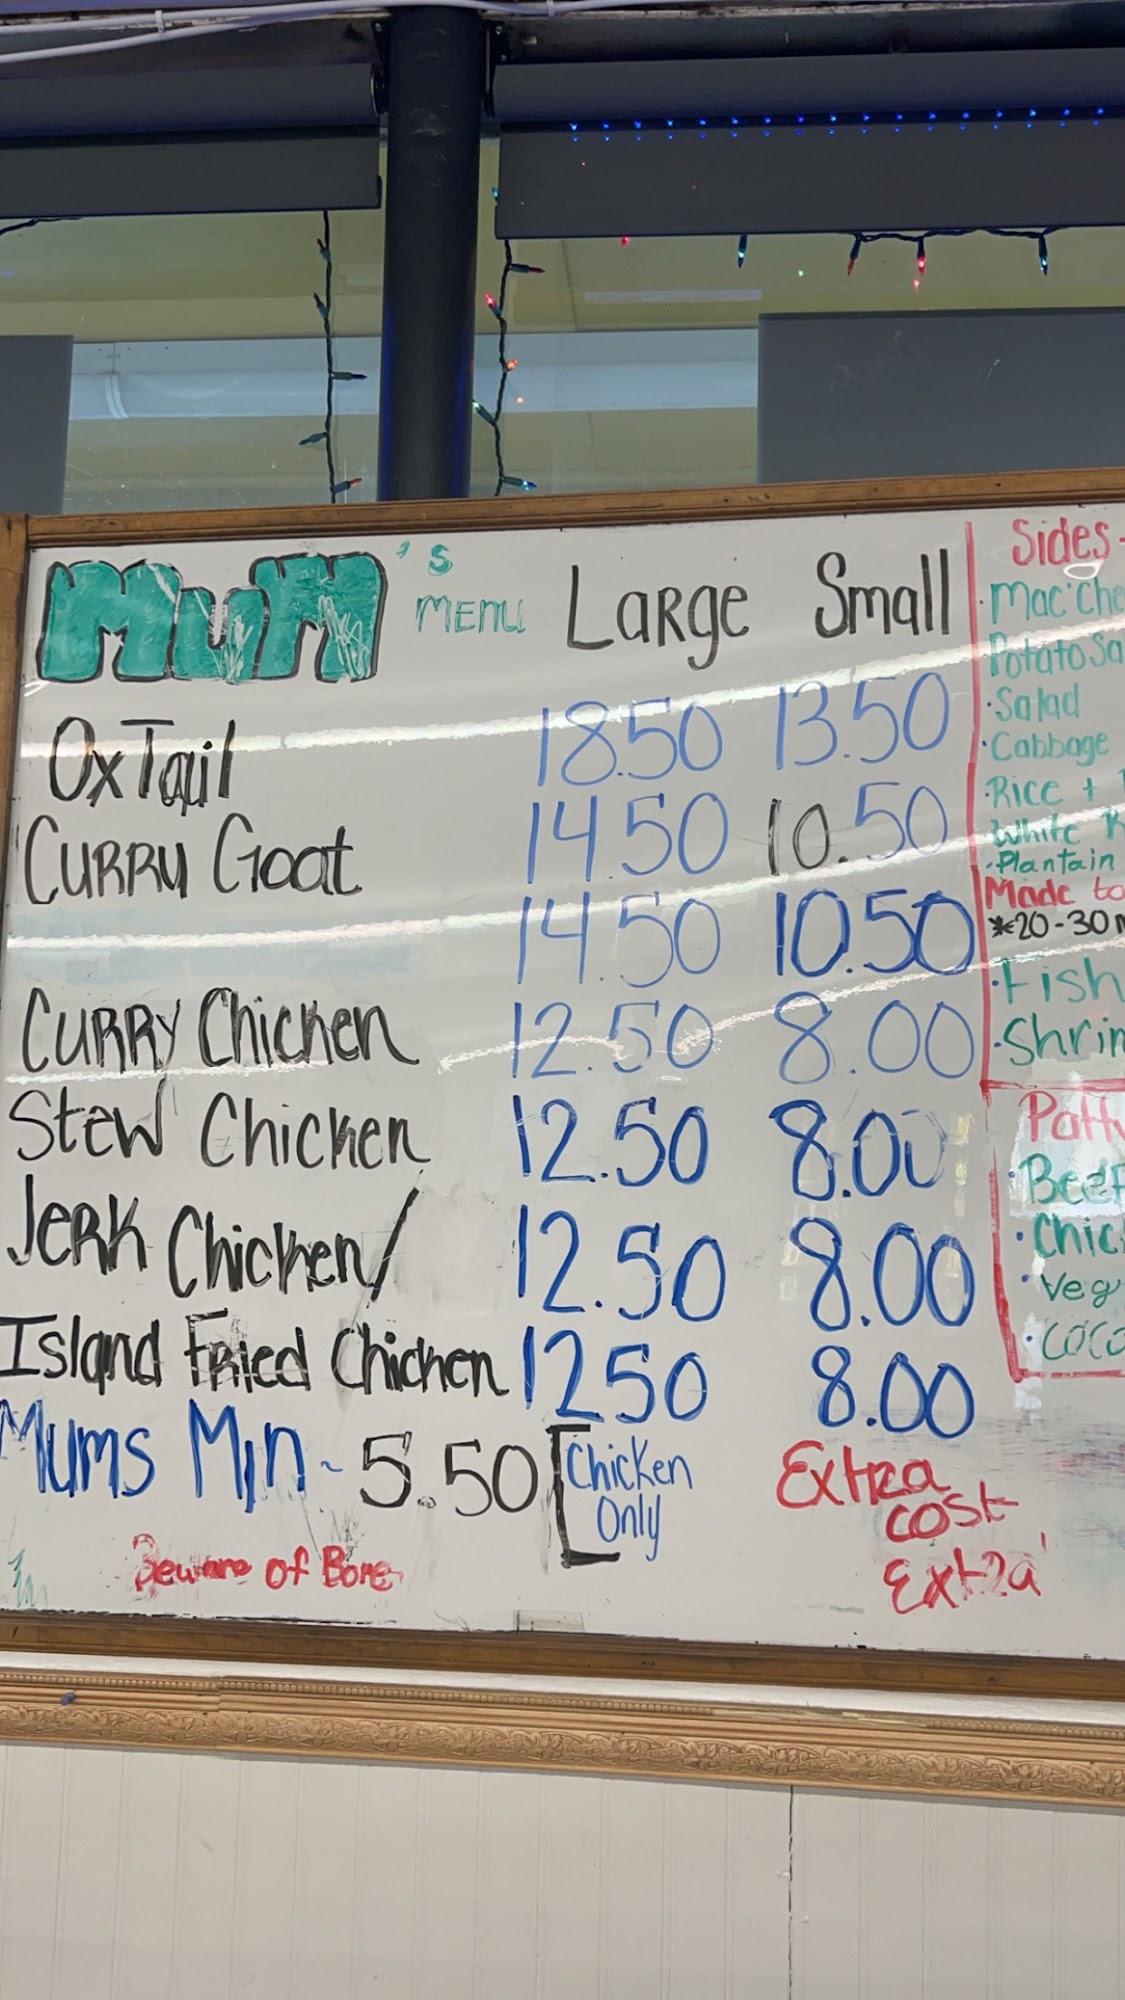 MuM's MENU Large Small
OxTail 18.50 13.50
Curry Goat 14.50 10.50
14.50 10.50
Curry Chicken 12.50 8.00
Stew Chicken 12.50 8.00
Jerk Chicken/ 12.50 8.00
Island Fried Chicken 1250 8.00
Mums Min ~ 5.50 [Chicken
Only
Extra
cost
Extra
Beware of Bone
Sides
·Mac'Che
Potato Sa
·Salad
·Cabbage
·Rice +
White R
·Plantain
Made to
*20-30
·Fish
·Shrim
Patty
·Beef
·Chic
·Veg
·Coco